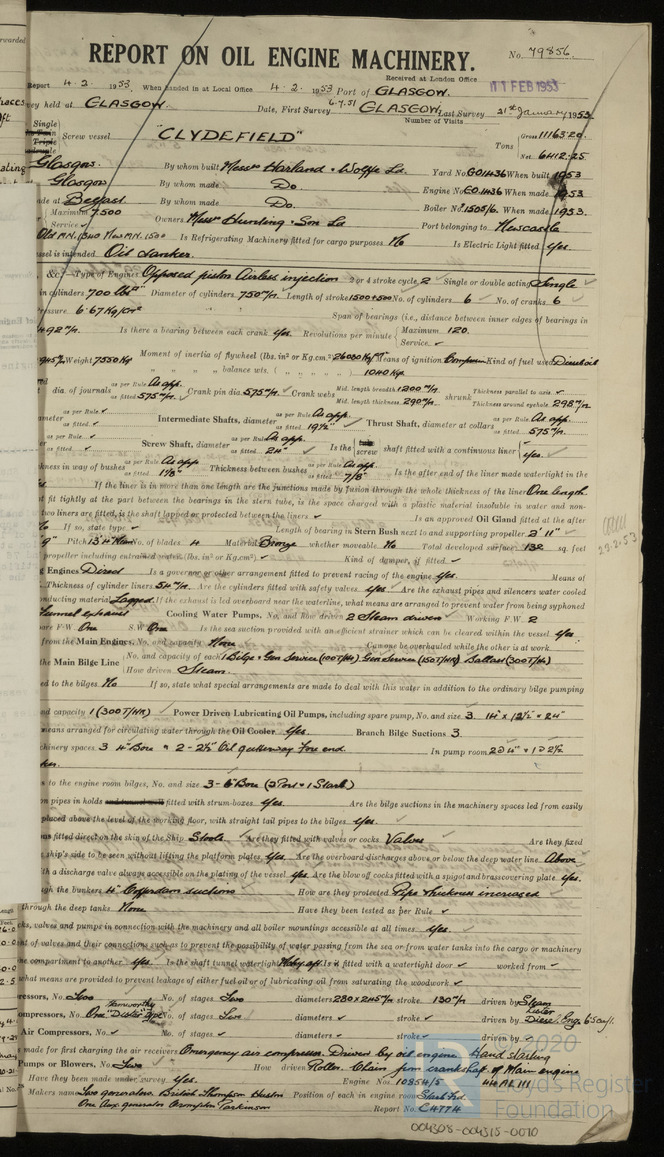 REPORT ON OIL ENGINE MACHINERY.
No. 79856
Received at London Office
11 FEB 1953
Report 4.2. 1953. When handed in at Local Office 4.2. 1953 Port of GLASGOW.
vey held at GLASGOW. Date, First Survey 6.7.51 GLASGOW Last Survey 21st January 1953
Number of Visits
Single
Triple
Screw vessel "CLYDEFIELD" Tons Gross 11163.20.
Net 6412.25
Glasgow. By whom built Messrs Harland & Wolff Ld. Yard No. GO1436 When built 1953
Glasgow. By whom made Do. Engine No. EO.1436 When made 1953
ade at Belfast. By whom made Do. Boiler No. 1505/6. When made 1953.
Maximum 7500 Owners Messrs Hunting & Son Ld Port belonging to Newcastle
Service
Is Refrigerating Machinery fitted for cargo purposes No Is Electric Light fitted Yes.
ssel is intended. Oil tanker.
&c.—Type of Engines Opposed piston Airless injection 2 or 4 stroke cycle 2 Single or double acting Single
in cylinders 700 lbs Diameter of cylinders 750 m/m Length of stroke 1500+500 No. of cylinders 6 No. of cranks 6
ressure. 6.67 Kg/cm² Span of bearings (i.e., distance between inner edges of bearings in
492 m/m. Is there a bearing between each crank. Yes. Revolutions per minute Maximum 120.
Service
Weight 7550 Kg Moment of inertia of flywheel (lbs. in² or Kg.cm²) Means of ignition Compression Kind of fuel used Diesel oil
balance wts. 1040 Kg.
dia. of journals as per Rule As app. as fitted 575 m/m Crank pin dia. 575 m/m Crank webs Mid. length breadth 1200 m/m Mid. length thickness 290 m/m shrunk Thickness parallel to axis Thickness around eyehole 298 m/m
ameter as per Rule as fitted Intermediate Shafts, diameter as per Rule As app. as fitted 19½" Thrust Shaft, diameter at collars as per Rule As app. as fitted 575 m/m.
as per Rule as fitted Screw Shaft, diameter as per Rule As app. as fitted 24" Is the screw shaft fitted with a continuous liner Yes.
kness in way of bushes as per Rule As app as fitted 1⅛" Thickness between bushes as per Rule As app. as fitted 7/8" Is the after end of the liner made watertight in the
If the liner is in more than one length are the junctions made by fusion through the whole thickness of the liner One length
t fit tightly at the part between the bearings in the stern tube, is the space charged with a plastic material insoluble in water and non-
two liners are fitted, is the shaft lapped or protected between the liners Is an approved Oil Gland fitted at the after
If so, state type Length of bearing in Stern Bush next to and supporting propeller 2' 11"
Pitch No. of blades 4 Material Bronze whether moveable No Total developed surface 132 sq. feet
propeller including entrained water (lbs. in² or Kg.cm²) Kind of damper, if fitted
g Engines Direct Is a governor or other arrangement fitted to prevent racing of the engine Yes. Means of
Thickness of cylinder liners 54 m/m. Are the cylinders fitted with safety valves Yes. Are the exhaust pipes and silencers water cooled
onducting material Lagged. If the exhaust is led overboard near the waterline, what means are arranged to prevent water from being syphoned
Funnel exhaust Cooling Water Pumps, No. and how driven 2 Steam driven Working F.W. 2
are F.W. One S.W. One Is the sea suction provided with an efficient strainer which can be cleared within the vessel Yes.
from the Main Engines, No. and capacity None Can one be overhauled while the other is at work
the Main Bilge Line No. and capacity of each 1 Bilge & Gen Service (100T/Hr) Gen Service (150T/HR) Ballast (300T/H)
How driven Steam.
ed to the bilges No If so, state what special arrangements are made to deal with this water in addition to the ordinary bilge pumping
nd capacity 1 (300T/HR) Power Driven Lubricating Oil Pumps, including spare pump, No. and size 3. 14" x 12½" x 24"
means arranged for circulating water through the Oil Cooler Yes. Branch Bilge Suctions 3
chinery spaces 3 4" Bore & 2 - 2½" Oil gutterway Fore end. In pump room 2 @ 4" & 1 @ 2½
s to the engine room bilges, No. and size 3-6" Bore (2 Port & 1 Starb)
on pipes in holds fitted with strum-boxes. Yes. Are the bilge suctions in the machinery spaces led from easily
placed above the level of the working floor, with straight tail pipes to the bilges Yes.
ns fitted direct on the skin of the Ship Steele Are they fitted with valves or cocks Valves Are they fixed
ship's side to be seen without lifting the platform plates Yes. Are the overboard discharges above or below the deep water line Above
th a discharge valve always accessible on the plating of the vessel Yes Are the blow off cocks fitted with a spigot and brass covering plate Yes.
gh the bunkers 4" Cofferdam suctions How are they protected Pipe thickness increased
through the deep tanks None Have they been tested as per Rule
ks, valves and pumps in connection with the machinery and all boiler mountings accessible at all times Yes.
nt of valves and their connections such as to prevent the possibility of water passing from the sea or from water tanks into the cargo or machinery
ne compartment to another Yes. Is the shaft tunnel watertight Mchy aft. Is it fitted with a watertight door worked from
what means are provided to prevent leakage of either fuel oil or of lubricating oil from saturating the woodwork
ressors, No. Two No. of stages Two diameters 280 x 245 m/m stroke 130 m/m driven by Steam
ompressors, No. One No. of stages Two diameters stroke driven by Lister Diesel Eng.
Air Compressors, No. No. of stages diameters stroke driven by
made for first charging the air receivers Emergency air compressor Driven by oil engine. Hand starting
Pumps or Blowers, No. Two How driven Roller Chain from crankshaft of Main engine
Have they been made under survey Yes. Engine No. 10854/5
Makers name Two generators British Thompson Huston Position of each in engine room Starb Fd.
One Aux. generator Crompton Parkinson Report No. C4774
27.2.53
© 2020
Lloyd's Register
Foundation
004308-004315-0070